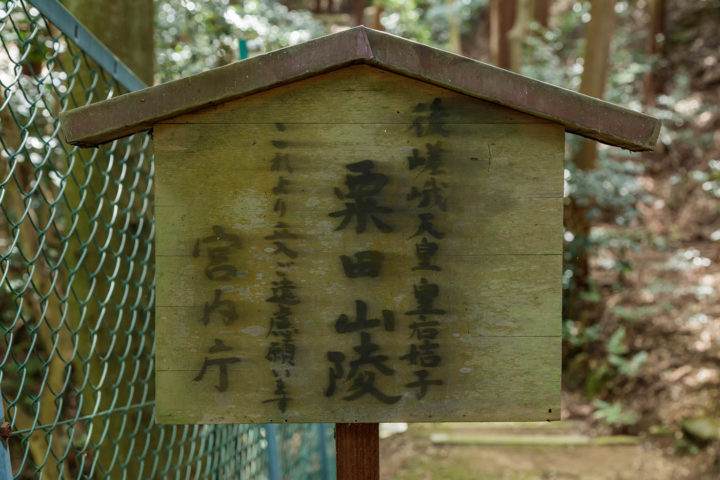 後嵯峨天皇皇后姞子
粟田山陵
これより立入ご遠慮願います
宮内庁